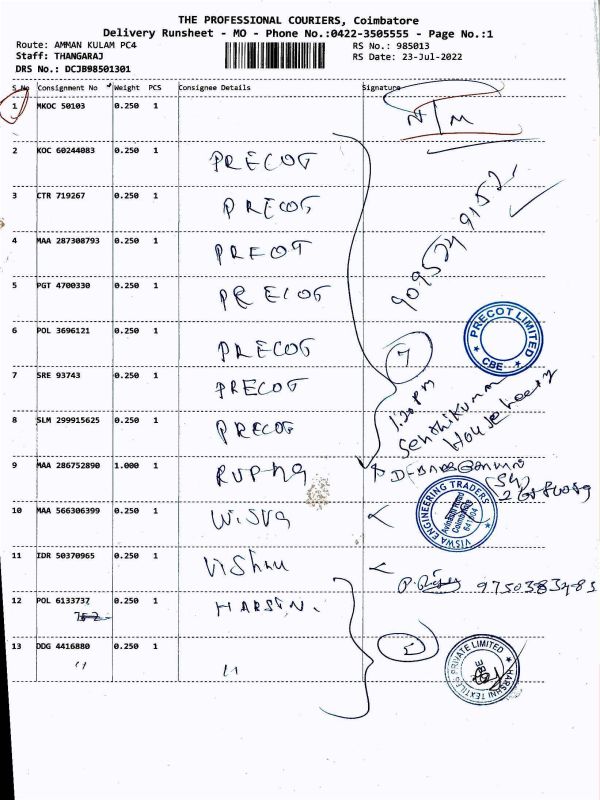 THE PROFESSIONAL COURIERS, Coimbatore
Delivery Runsheet - MO - Phone No.:0422-3505555 - Page No.:1
Route: AMMAN KULAM PC4 RS No.: 985013
Staff: THANGARAJ RS Date: 23-Jul-2022
DRS No.: DCJB98501301
S.No Consignment No Weight PCS Consignee Details Signature
1 MKOC 50103 0.250 1 N/M
2 KOC 60244083 0.250 1 PRECOT
3 CTR 719267 0.250 1 PRECOT
4 MAA 287308793 0.250 1 PRECOT
5 PGT 4700330 0.250 1 PRECOT
PRECOT LIMITED
CBE
6 POL 3696121 0.250 1 PRECOT
7
7 SRE 93743 0.250 1 PRECOT
1:20 pm
8 SLM 299915625 0.250 1 PRECOT
9 MAA 286752890 1.000 1
VISWA ENGINEERING TRADERS
Avinashi Road
Coimbatore
641004
10 MAA 566306399 0.250 1 Wisva
11 IDR 50370965 0.250 1 Vishnu
9750383483
12 POL 6133737 0.250 1 HARSIN.
13 DDG 4416880 0.250 1
HARSHNI TEXTILES PRIVATE LIMITED
" "